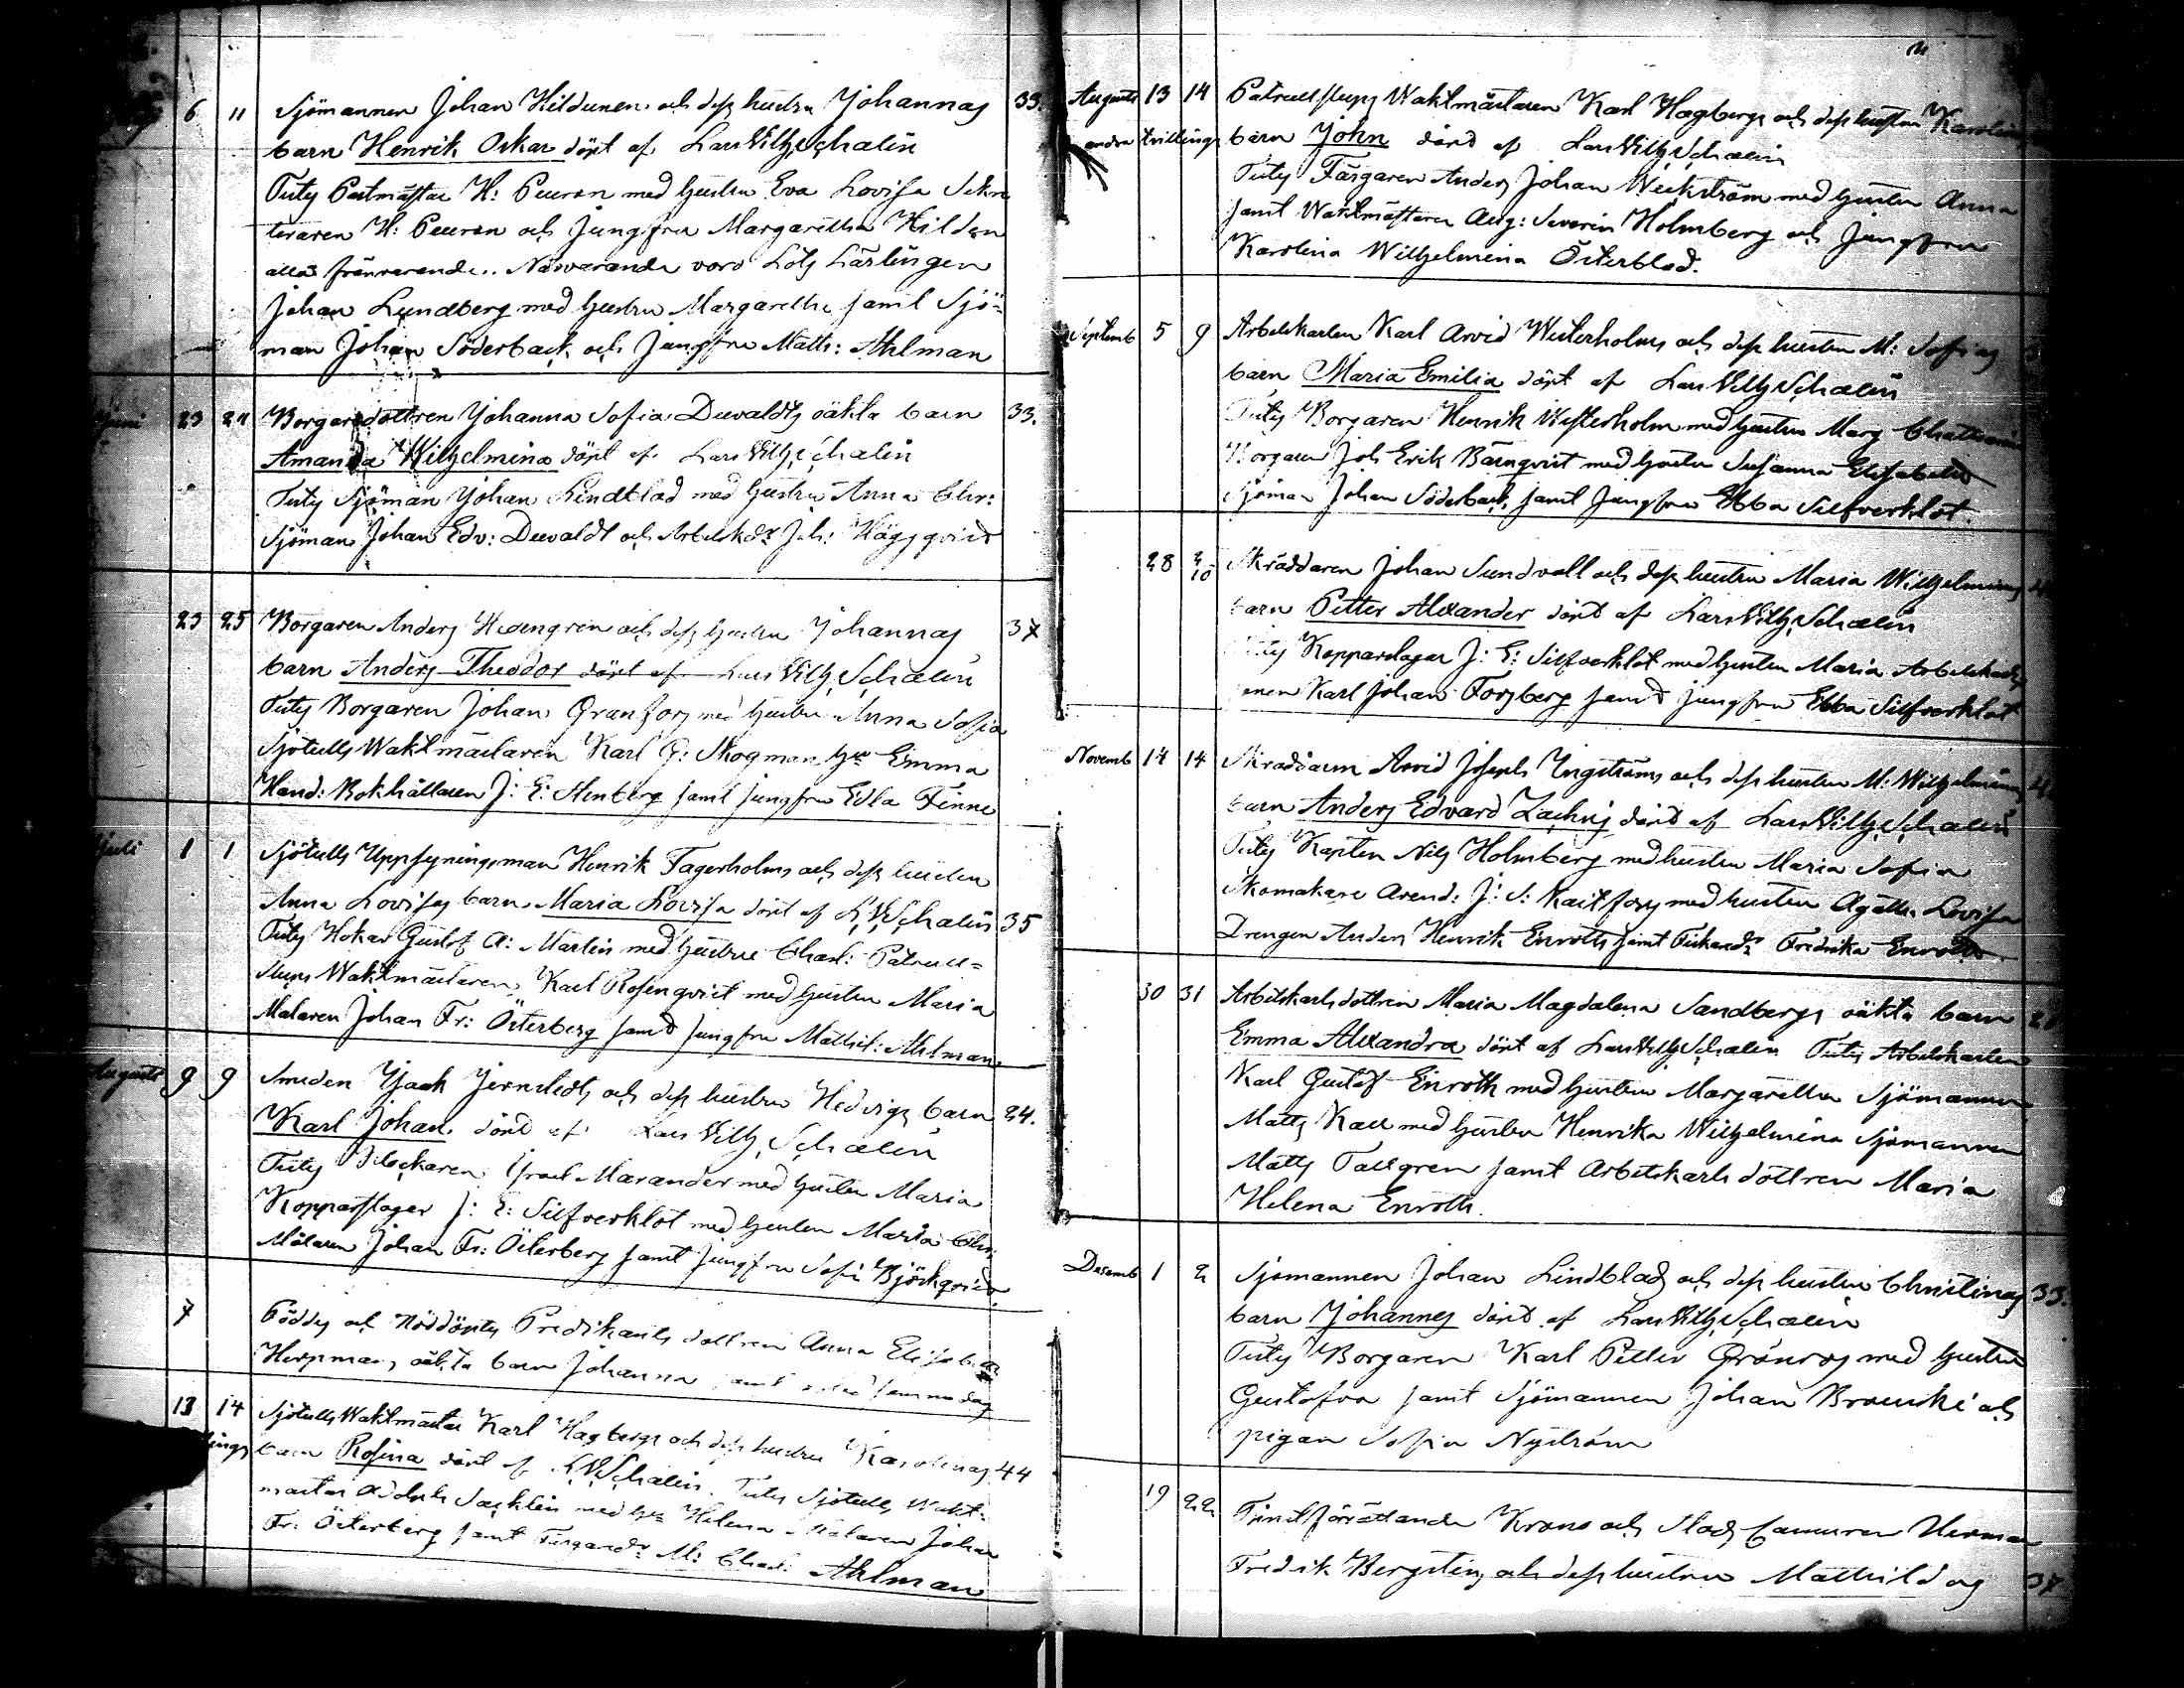 6 11 Sjömannen Johan Hildunen och dess hustru Johannas 33.
barn Henrik Oskar döpt af Lars Vilh. Schalin
Test. Postmästar H: Peuron med hustru Eva Lovisa Sekre
teraren H: Peuron och Jungfru Margaretha Hilden
alla frånvarande. Närvarande voro Lots Lärlingen
Johan Lundberg med hustru Margaretha samt Sjö-
man Johan Söderback och Jungfru Math: Ahlman
Juni 23 24 Borgaredottren Johanna Sofia Dewaldts oäkta barn 33.
Amanda Wilhelmina döpt af Lars Vilh. Schalin
Test. Sjöman Johan Lindblad med hustru Anna Chr:
Sjöman Johan Edv: Dewaldt och Arbetskdr Joh: Häggqvist
23 25 Borgaren Anders Hedengren och dess hustru Johannas 37
barn Anders Theodor döpt af Lars Vilh. Schalin
Test. Borgaren Johan Granfors med hustru Anna Sofia
Sjötulls Waktmästaren Karl G: Skogman hu Emma
Hand: Bokhållaren J: E: Stenberg samt jungfru Edla Finne
Juli 1 1 Sjötulls Uppsyningsman Henrik Fagerholms och dess hustru
Anna Lovisas barn Maria Lovisa döpt af L. V. Schalin 35
Test. Hökar Gustof A: Martin med hustru Charl: Patrull-
slups Waktmästaren Karl Rosenqvist med hustru Maria
Målaren Johan Fr: Österberg samt jungfru Mathil: Ahlman
Augusti 9 9 Smeden Isaak Jernstedts och dess hustru Hedvigs barn 24.
Karl Johan döpt af Lars Vilh. Schalin
Test. Israel Marander med hustru Maria
Kopparslagar J: E: Silfverklot med hustru Maria Chr.
Målaren Johan Fr: Österberg samt jungfru Sofia Björkqvist
7 Föddes och Nöddöptes Predikants dottren Anna Elisabeth
Herpmans oäkta barn Johanna samt samma dag
13 14 Sjötulls Waktmästar Karl Hagbergs och dess hustru Karolinas 44
barn Rosina döpt af L. V. Schalin. Test. Sjötulls Wakt-
mästar Adolph Sacklin med hu Helena Målaren Johan
Fr: Österberg samt Färgaredr M: Charl: Ahlman
Augusti 13 14 Patrullslups Waktmästaren Karl Hagbergs och dess hustru Karolin
andra tvillings barn John döpt af Lars Vilh. Schalin
Test. Färgaren Anders Johan Weckström med hustru Anna
samt Waktmästaren Aug: Severin Holmberg och Jungfru
Karolina Wilhelmina Österblad.
Septemb 5 9 Arbetskarlen Karl Arvid Westerholms och dess hustru M: Sofias
barn Maria Emilia döpt af Lars Vilh. Schalin
Test. Borgaren Henrik Westerholm med hustru Marg
Borgaren Joh Erik Bärnqvist med hustru Susanna Elisabeth
Sjöman Johan Söderback samt jungfru Ebba Silfverklot
28 2/10 Skräddaren Johan Sundvall och dess hustru Maria Wilhelminas
barn Petter Alexander döpt af Lars Vilh. Schalin
Kopparslagar J: E: Silfverklot med hustru Maria
Karl Johan Forsberg samt jungfru Ebba Silfverklot
Novemb 14 14 Skräddaren Arvid Josephs Ingströms och dess hustru M: Wilhelminas
barn Anders Edvard Zachris döpt af Lars Vilh. Schalin
Test. Kapten Nils Holmberg med hustru Maria Sofia
Skomakare J: S: Kaitfors med hustru Agatha Lovisa
Drengen Anders Henrik Enroth samt Fredrika Enroth.
30 31 Arbetskarlsdottren Maria Magdalena Sandbergs oäkta barn
Emma Alexandra döpt af Lars Vilh. Schalin Test. Arbetskarlen
Karl Gustaf Enroth med hustru Margaretha Sjömannen
Matts Kall med hustru Henrika Wilhelmina Sjömannen
Matts Tallgren samt Arbetskarls dottren Maria
Helena Enroth.
Decemb 1 2 Sjömannen Johan Lindblads och dess hustru Christinas 33.
barn Johannes döpt af Lars Vilh. Schalin
Test. Borgaren Karl Petter Grönros med hustru
Gustafva samt Sjömannen Johan och
pigan Sofia Nyström
19 22 Tjenstförrättande Krono och Stads Herman
Fredrik Bergstens och dess hustru Mathildas 37